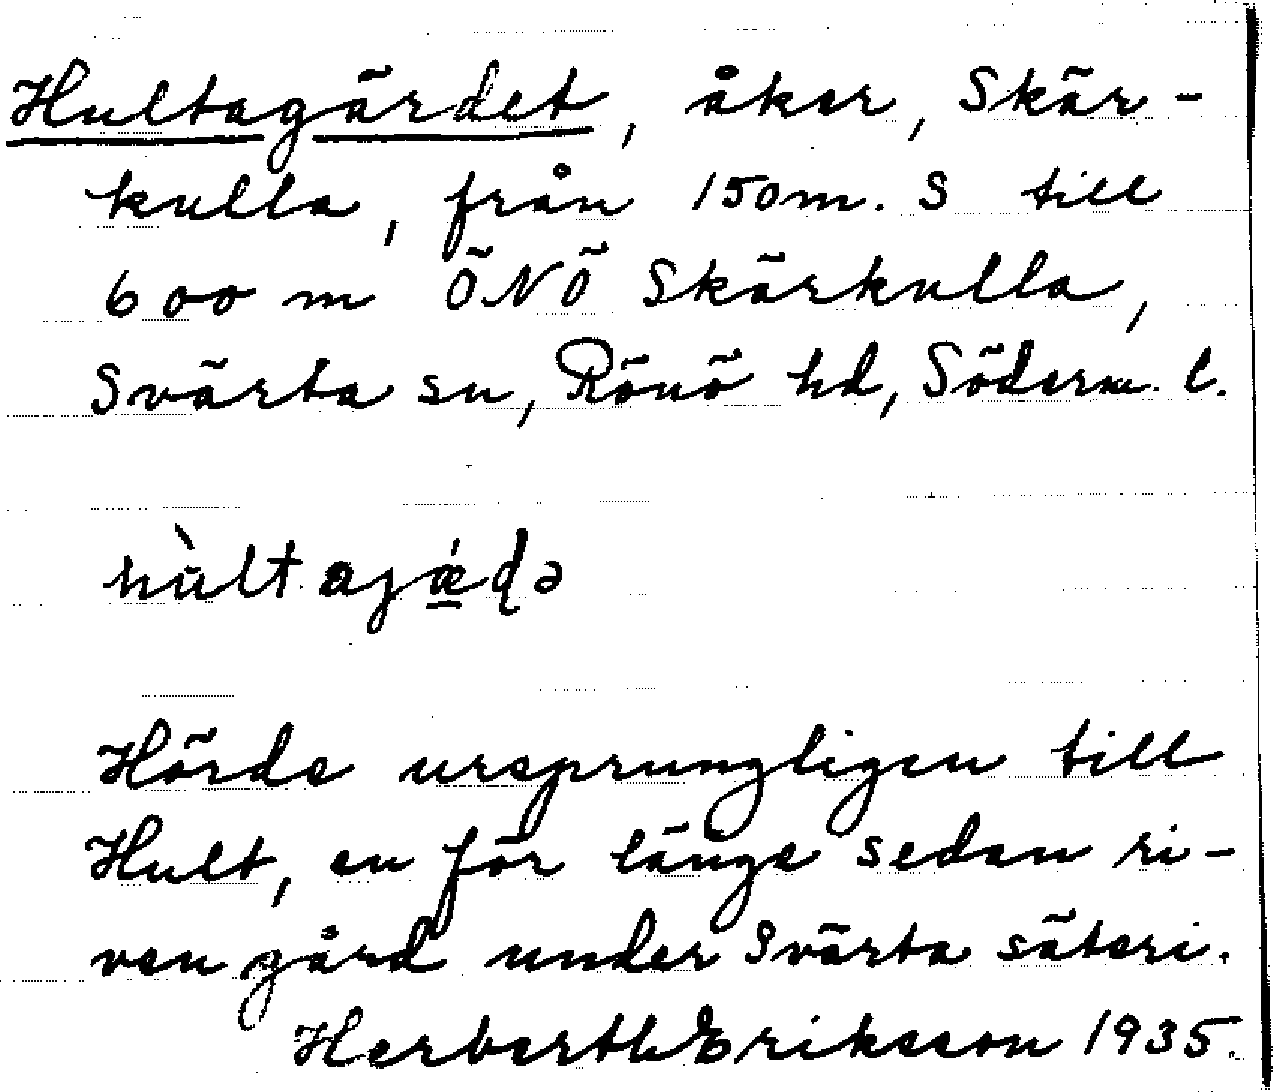 Hultagärdet, åker, Skär-
kulla, från 150 m. S till
600 m ÖNÖ Skärkulla,
Svärta sn, Rönö hd, Söderm. l.
hùltajǽ̲ɖə
Hörde ursprungligen till
Hult, en för länge sedan ri-
ven gård under Svärta säteri.
Herberth Eriksson 1935.